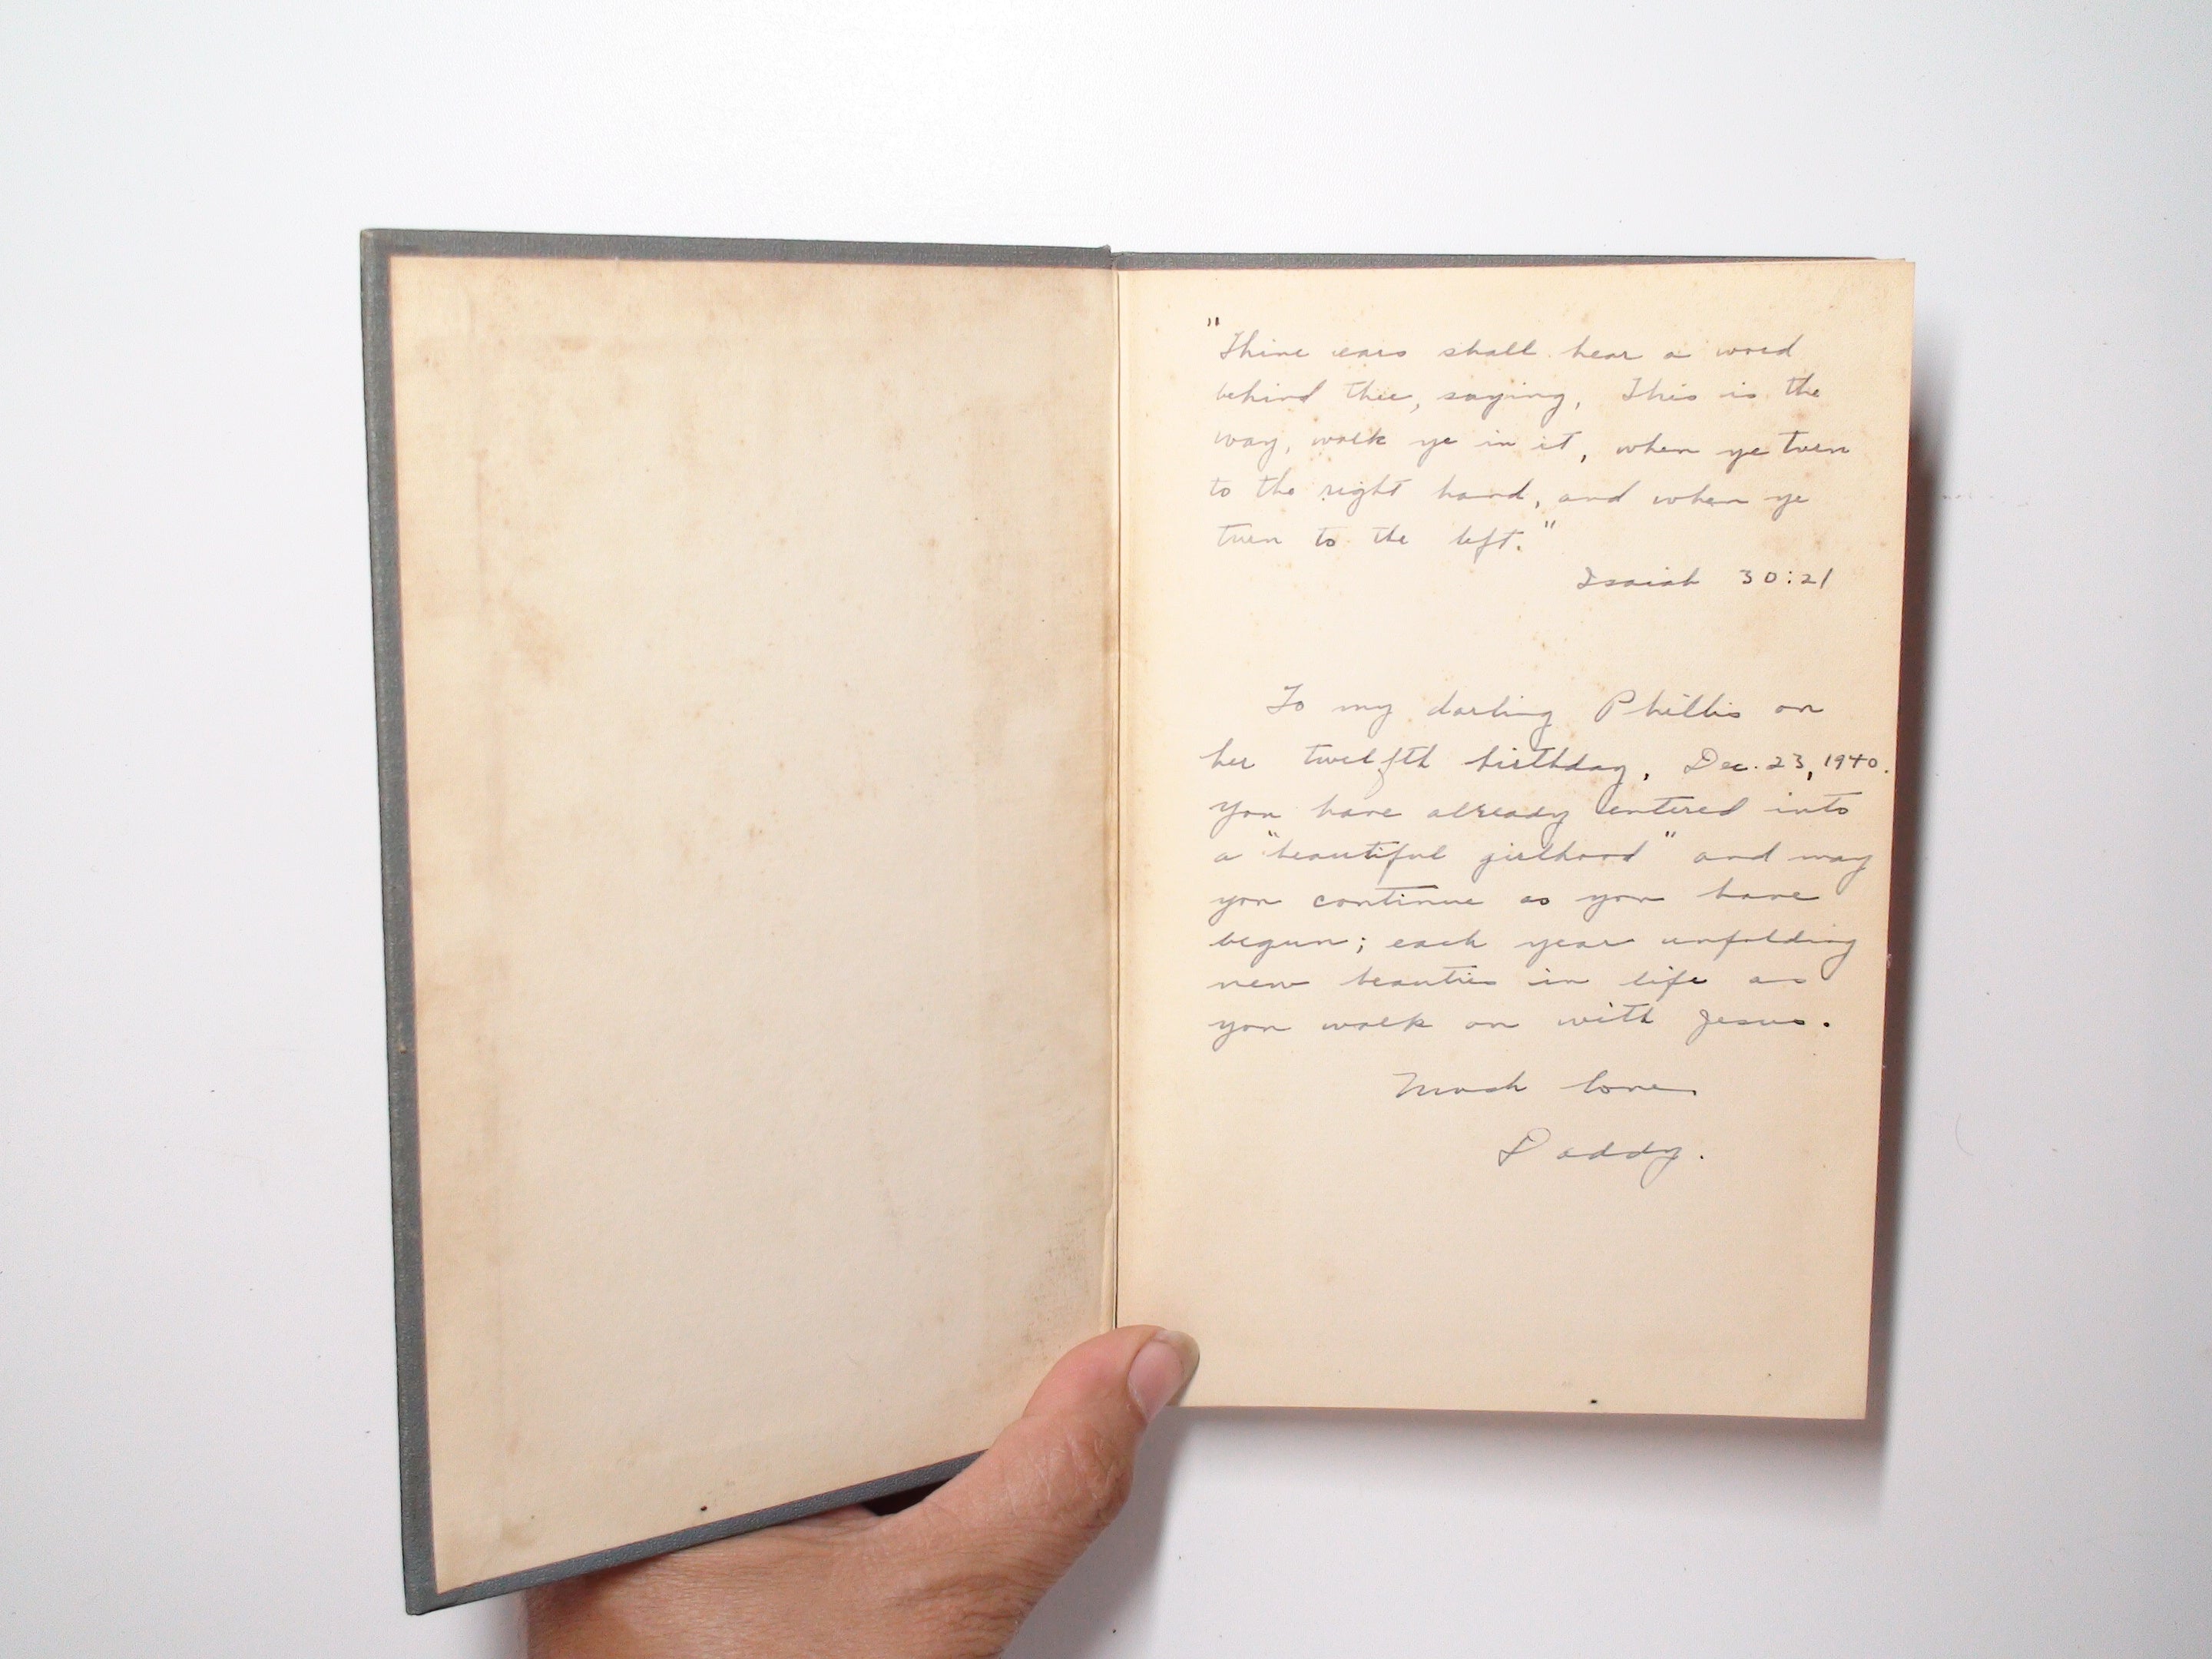 "Thine ears shall hear a word
behind thee, saying, This is the
way, walk ye in it, when ye turn
to the right hand, and when ye
turn to the left."
Isaiah 30:21
To my darling Phillis on
her twelfth birthday, Dec. 23, 1940.
You have already entered into
a "beautiful girlhood" and may
you continue as you have
begun; each year unfolding
new beauties in life as
you walk on with Jesus.
Much love
Daddy.